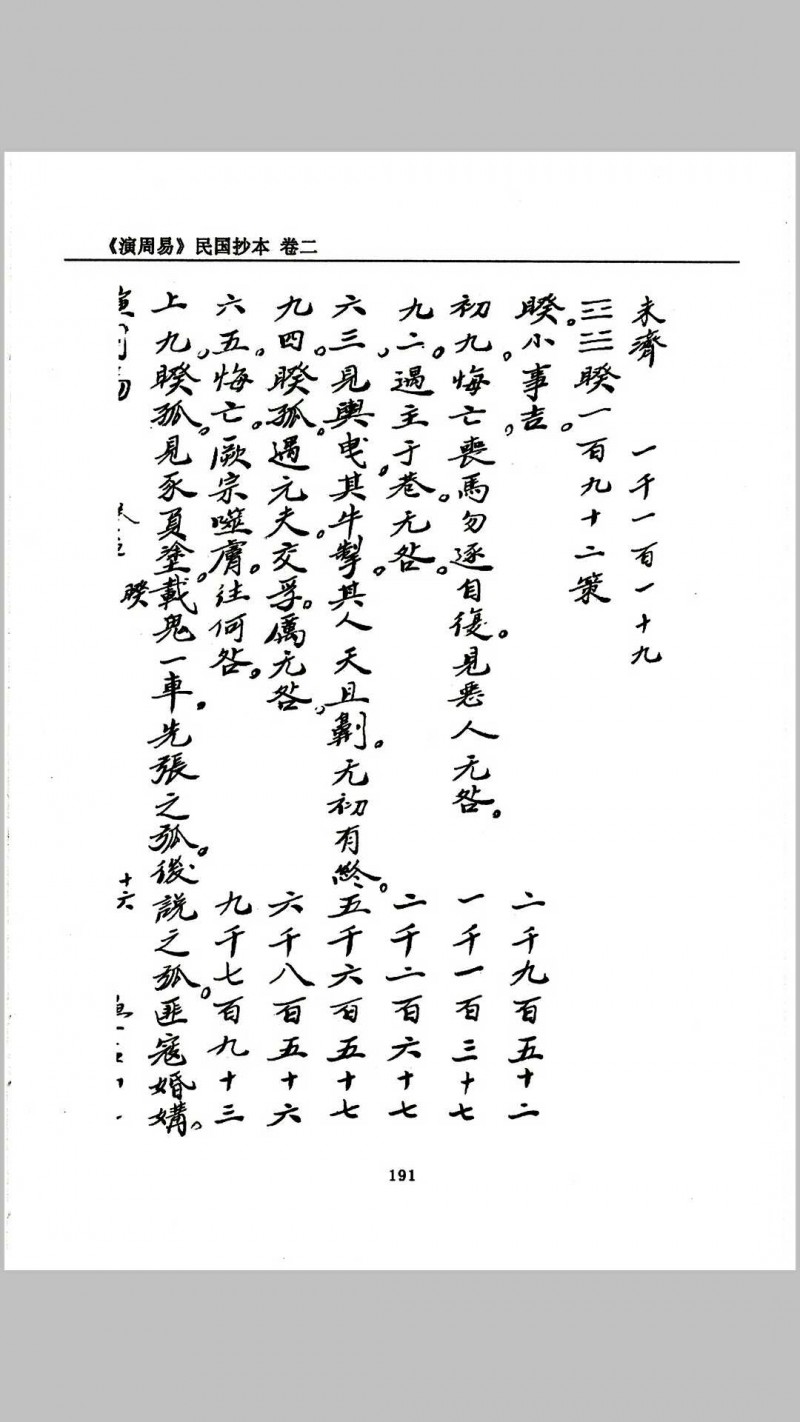 《演周易》民国抄本 卷二
未濟 一千一百一十九
睽一百九十二策
睽。小事吉。 二千九百五十二
初九。悔亡喪馬勿逐自復。見惡人无咎。 一千一百三十七
九二。遇主于巷。无咎。 二千二百六十七
六三。見輿曳。其牛掣。其人天且劓。无初有終。 五千六百五十七
九四。睽孤。遇元夫。交孚。厲无咎。 六千八百五十六
六五。悔亡。厥宗噬膚。往何咎。 九千七百九十三
上九。睽孤。見豕負塗。載鬼一車。先張之弧。後說之弧。匪寇婚媾。
睽 十六
191